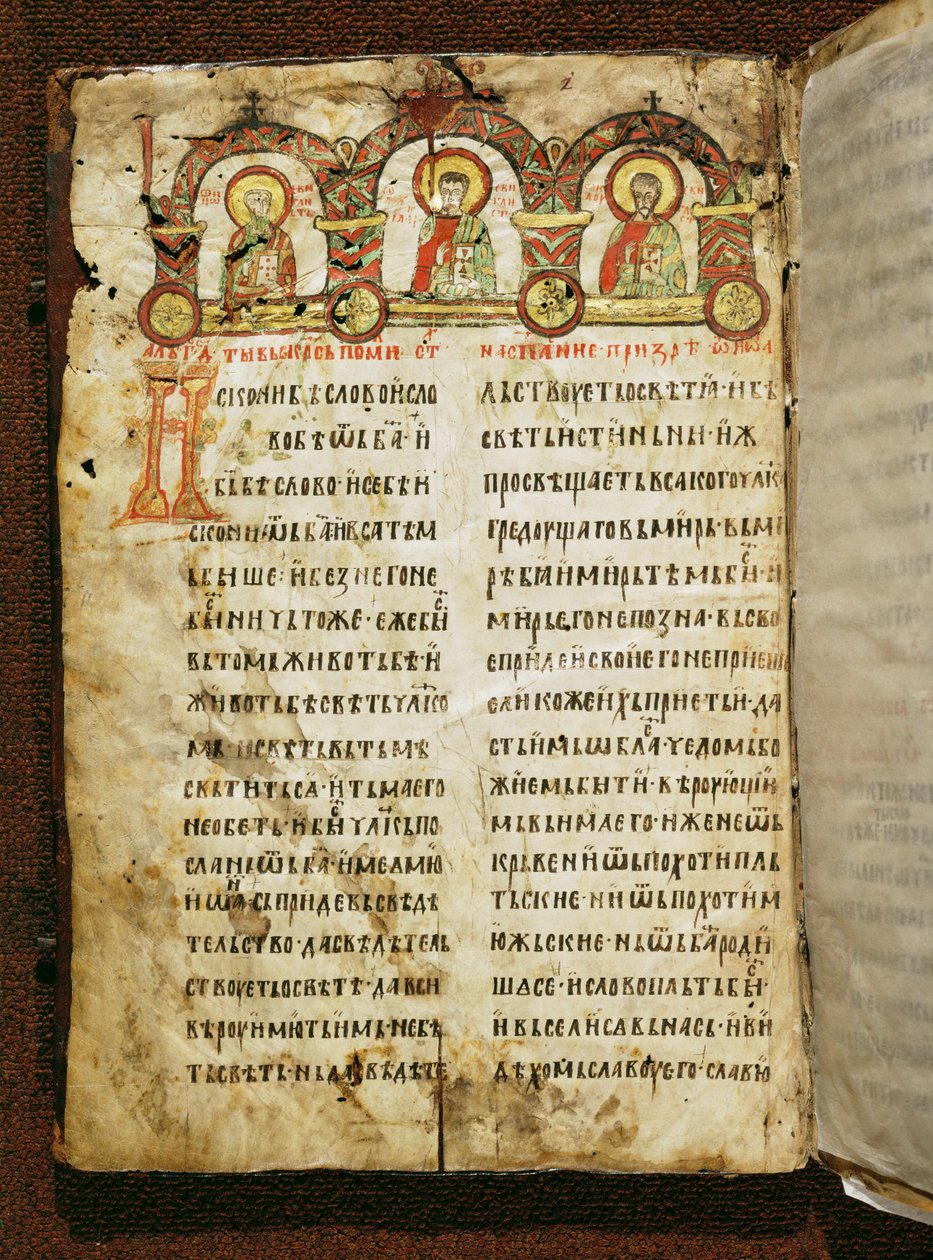 искони бѣ слово и сло
во бѣ ѿ ба҃ · и
б҃ь бѣ слово · и се бѣ и
скони · ѿ ба҃ · и вса тѣм
ь бьıше · и без него не
бьı ничьтоже · еже бьı
вьтомь животь бѣ · и
животь бѣ свѣть чл҃ко
мь · и свѣть вь тьмѣ
свьтить сꙙ · и тьма его
не обеть · и бьı чл҃кь по
слань ѿ ба҃ · име ѥмѹ
иѡ҃ань · сь приде вь свѣдѣ
тельство · да свѣдѣтель
ствоуеть о свѣтѣ · да вси
вѣроу имють имь · не бѣ
ть свѣть · нь да свѣдѣте
льствоуеть о свѣтѣ · и бѣ
свѣть истиньнꙑи · иж
просвѣщаеть всакого чл҃ка
гредоущаго вь мирь · вь ми
рѣ бѣ и мирь тѣмь бьı · и
мирь его не позна · вь сво
ѣ приде и свои его не приеше
елико же ихь приеть и · да
сть имь ѡбла · чедомь бо
жиемь бьıти · вѣроующи
мь вь име его · иже не ѿ
крьве ни ѿ похоти пль
тьскиѥ · ни ѿ похоти м
южьскиѥ · нь ѿ ба҃ роди
ше се · и слово пльть бьı ·
и вьсели сꙙ вь нась · и ви
дѣхомь славоу его · славю